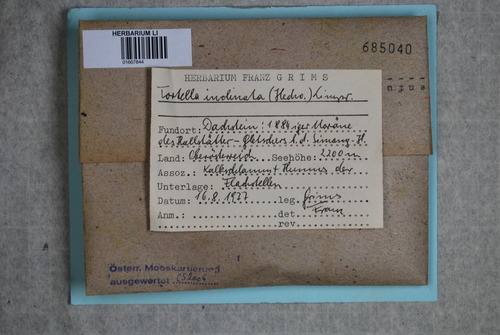 HERBARIUM LI
01607844
685040
HERBARIUM FRANZ GRIMS
Tortella inclinata (Hedw.) Limpr.
Fundort: Dachstein: 1884iger Moräne
des Hallstätter-Gletschers b.d. Simony-H.
Land: Oberösterreich Seehöhe: 2200m
Assoz.: Kalkschlamm + Humus der
Unterlage: Flachstellen
Datum: 16.8.1977 leg. Grims
Anm.: det. Franz
rev.
Österr. Mooskartierung
ausgewertet